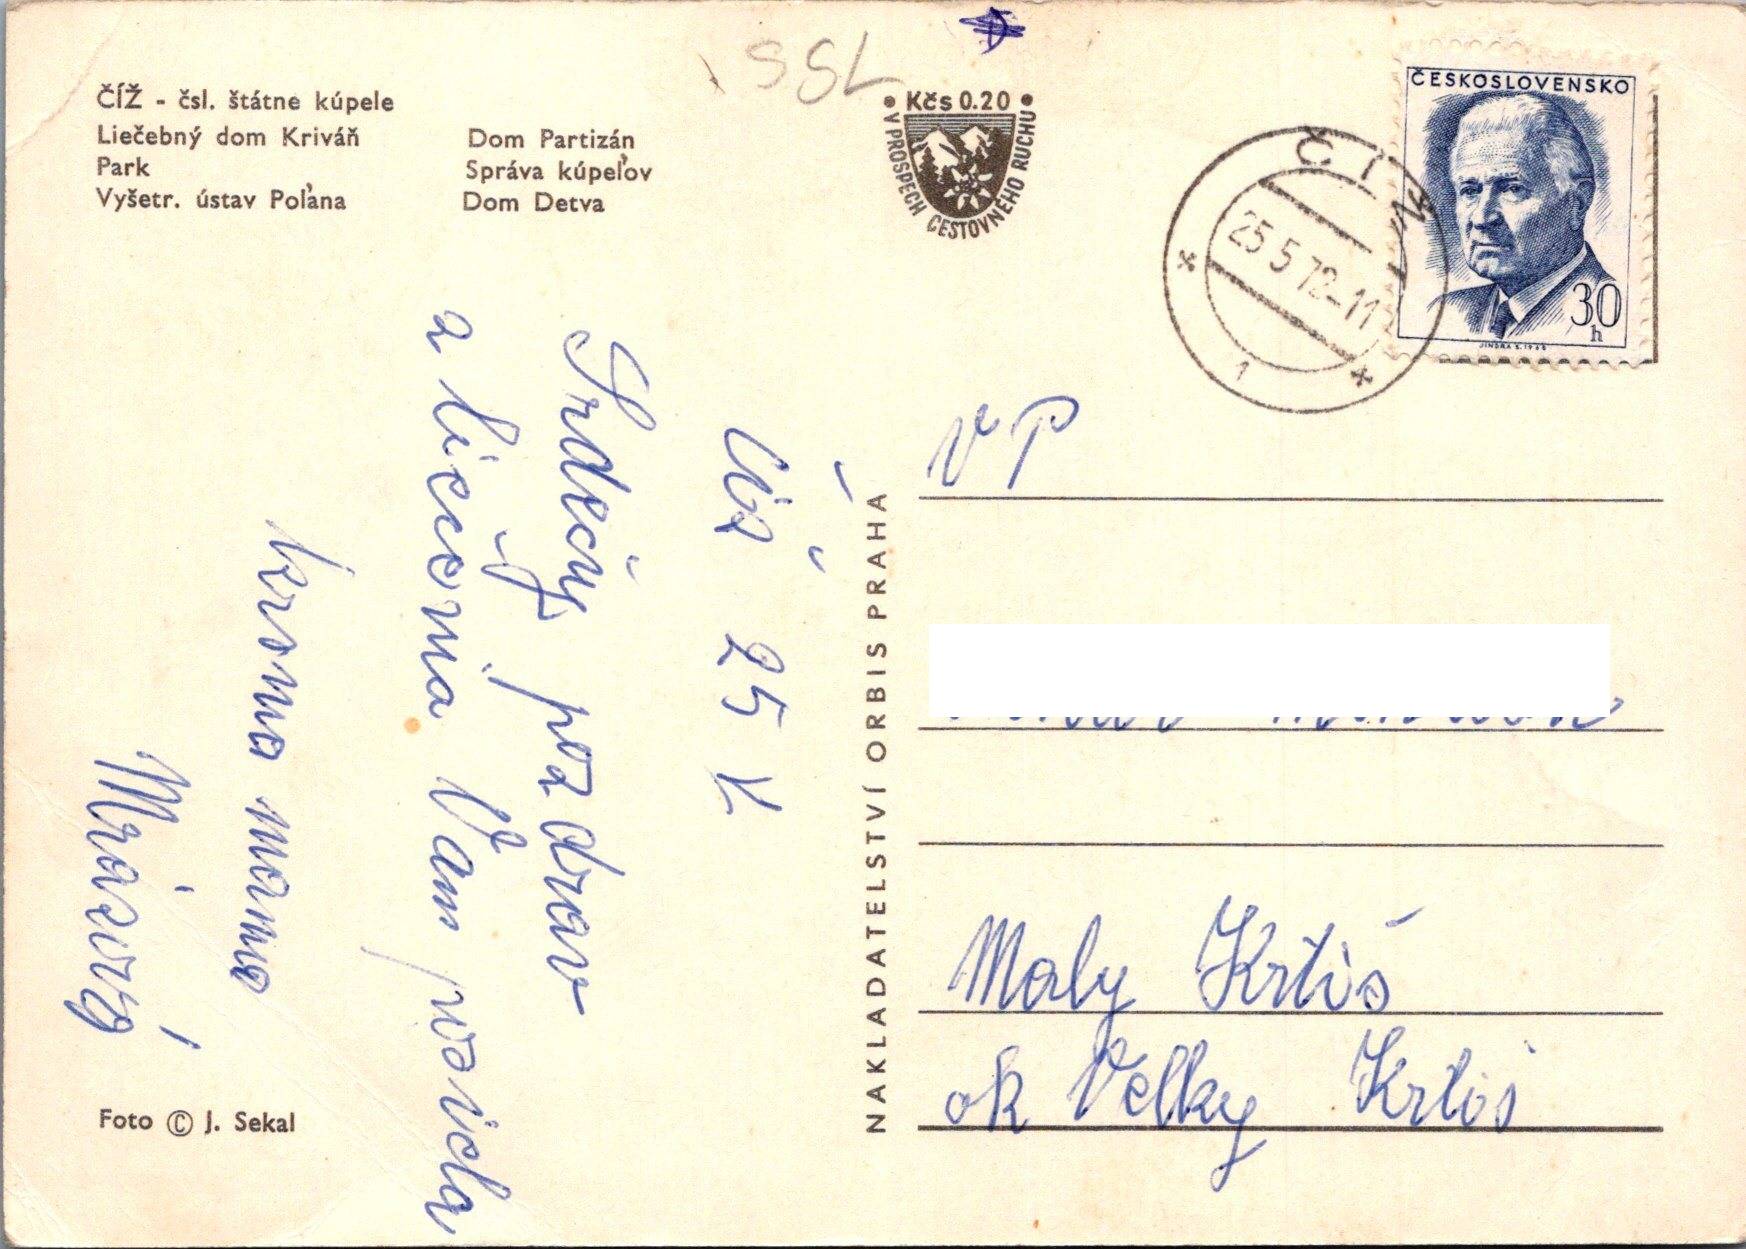 SSL
ČÍŽ - čsl. štátne kúpele
Liečebný dom Kriváň
Park
Vyšetr. ústav Poľana
Dom Partizán
Správa kúpeľov
Dom Detva
Kčs 0.20
V PROSPECH CESTOVNÉHO RUCHU
ČESKOSLOVENSKO
30
h
JINDRA S. 1968
ČÍŽ
25.5.72-11
1
25 V
Srdečný pozdrav
a liečenia Vam posiela
krsna mama
NAKLADATELSTVÍ ORBIS PRAHA
VP
Maly Krtiš
ok Velky Krtiš
Foto © J. Sekal